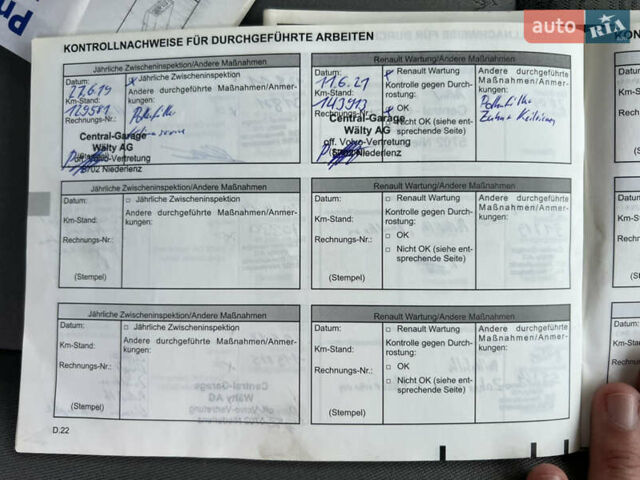 auto RIA
KONTROLLNACHWEISE FÜR DURCHGEFÜHRTE ARBEITEN
Jährliche Zwischeninspektion/Andere Maßnahmen
Datum:
27.6.19
Km-Stand:
129581
Rechnungs-Nr.:
Jährliche Zwischeninspektion
Andere durchgeführte Maßnahmen/Anmerkungen:
Pollenfilter
Central-Garage
Wälty AG
off. Volvo-Vertretung
5702 Niederlenz
Renault Wartung/Andere Maßnahmen
Datum:
11.6.21
Km-Stand:
143913
Rechnungs-Nr.:
Renault Wartung
Kontrolle gegen Durch-
rostung:
OK
Nicht OK (siehe ent-
sprechende Seite)
Andere durchgeführte
Maßnahmen/Anmer-
kungen:
Pollenfilter
Zahn + Keilriemen
Central-Garage
Wälty AG
off. Volvo-Vertretung
5702 Niederlenz
Jährliche Zwischeninspektion/Andere Maßnahmen
Datum:
Km-Stand:
Rechnungs-Nr.:
(Stempel)
Jährliche Zwischeninspektion
Andere durchgeführte Maßnahmen/Anmer-
kungen:
Renault Wartung/Andere Maßnahmen
Datum:
Km-Stand:
Rechnungs-Nr.:
(Stempel)
Renault Wartung
Kontrolle gegen Durch-
rostung:
OK
Nicht OK (siehe ent-
sprechende Seite)
Andere durchgeführte
Maßnahmen/Anmer-
kungen:
Jährliche Zwischeninspektion/Andere Maßnahmen
Datum:
Km-Stand:
Rechnungs-Nr.:
(Stempel)
Jährliche Zwischeninspektion
Andere durchgeführte Maßnahmen/Anmer-
kungen:
Renault Wartung/Andere Maßnahmen
Datum:
Km-Stand:
Rechnungs-Nr.:
(Stempel)
Renault Wartung
Kontrolle gegen Durch-
rostung:
OK
Nicht OK (siehe ent-
sprechende Seite)
Andere durchgeführte
Maßnahmen/Anmer-
kungen:
D.22